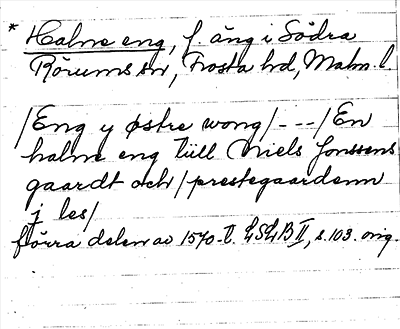 * Halme eng, f. äng i Södra
Rörums sn, Frosta hd, Malm. l
/Eng y østre wong/---/En
halme eng tiill Niels Jonssens
gaardt och/prestegaardenn
j les/
förra delen av 1570-t. LSLB II, s. 103. orig.